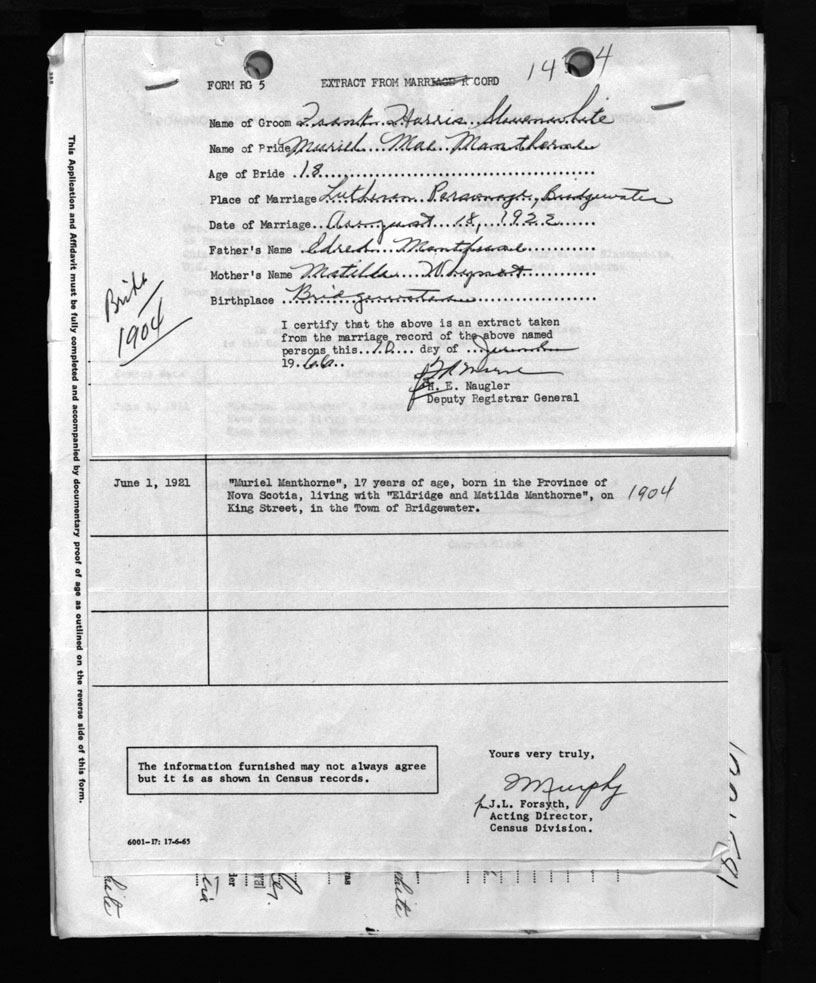 FORM RG 5 EXTRACT FROM MARRIAGE R CORD
Name of Groom Frank Harris Slauenwhite
Name of Pride Muriel Mae Manthorne
Age of Bride 18
Place of Marriage Lutheran Parsonage, Bridgewater
Date of Marriage August 18, 1922
Father's Name Manthorne
Mother's Name Matilda
Birthplace Bridgewater
Birth
1904
I certify that the above is an extract taken
from the marriage record of the above named
persons this day of
19.66..
H. E. Naugler
Deputy Registrar General
June 1, 1921 "Muriel Manthorne", 17 years of age, born in the Province of
Nova Scotia, living with "Eldridge and Matilda Manthorne", on 1904
King Street, in the Town of Bridgewater.
The information furnished may not always agree
but it is as shown in Census records.
Yours very truly,
J.L. Forsyth,
Acting Director,
Census Division.
6001-17: 17-6-65
This Application and Affidavit must be fully completed and accompanied by documentary proof of age as outlined on the reverse side of this form.